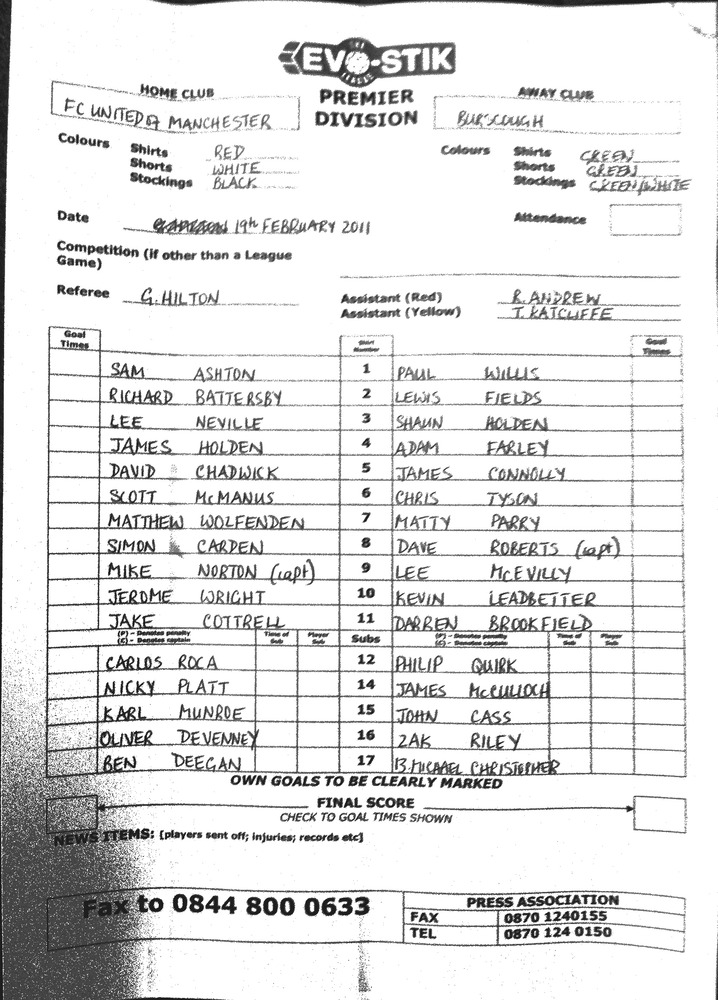 THE
EVO-STIK
LEAGUE
PREMIER
DIVISION
HOME CLUB
FC UNITED OF MANCHESTER
AWAY CLUB
BURSCOUGH
Colours Shirts RED
Shorts WHITE
Stockings BLACK
Colours Shirts GREEN
Shorts GREEN
Stockings GREEN/WHITE
Date 19th FEBRUARY 2011
Attendance
Competition (if other than a League
Game)
Referee G. HILTON
Assistant (Red) R. ANDREW
Assistant (Yellow) T. RATCLIFFE
Goal Times Shirt Number Goal Times
SAM ASHTON 1 PAUL WILLIS
RICHARD BATTERSBY 2 LEWIS FIELDS
LEE NEVILLE 3 SHAUN HOLDEN
JAMES HOLDEN 4 ADAM FARLEY
DAVID CHADWICK 5 JAMES CONNOLLY
SCOTT McMANUS 6 CHRIS TYSON
MATTHEW WOLFENDEN 7 MATTY PARRY
SIMON CARDEN 8 DAVE ROBERTS (capt)
MIKE NORTON (capt) 9 LEE McEVILLY
JEROME WRIGHT 10 KEVIN LEADBETTER
JAKE COTTRELL 11 DARREN BROOKFIELD
(P) - Denotes penalty (C) - Denotes captain Time of Sub Player Sub Subs (P) - Denotes penalty (C) - Denotes captain Time of Sub Player Sub
CARLOS ROCA 12 PHILIP QUIRK
NICKY PLATT 14 JAMES McCULLOCH
KARL MUNROE 15 JOHN CASS
OLIVER DEVENNEY 16 ZAK RILEY
BEN DEEGAN 17 B. MICHAEL CHRISTOPHER
OWN GOALS TO BE CLEARLY MARKED
FINAL SCORE
CHECK TO GOAL TIMES SHOWN
NEWS ITEMS: [players sent off; injuries; records etc]
Fax to 0844 800 0633
PRESS ASSOCIATION
FAX 0870 1240155
TEL 0870 124 0150